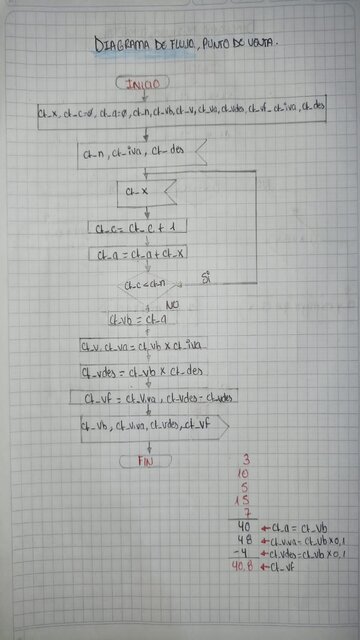 DIAGRAMA DE FLUJO, PUNTO DE VENTA.
INICIO
ct_x, ct_c=0, ct_a=0, ct_n, ct_vb, ct_v, ct_va, ct_vdes, ct_vf, ct_iva, ct_des
ct_n, ct_iva, ct_des
ct_x
ct_c= ct_c + 1
ct_a = ct_a + ct_x
ct_c < ct_n
Si
NO
ct_vb = ct_a
ct_v.ct_va = ct_vb x ct_iva
ct_vdes = ct_vb x ct_des
ct_vf = ct_v.va, ct_vdes - ct_vdes
ct_vb, ct_v.va, ct_vdes, ct_vf
FIN
3
10
5
15
7
40 ← ct_a = ct_vb
48 ← ct_v.va = ct_vb x 0,1
-4 ← ct_vdes = ct_vb x 0,1
40,8 ← ct_vf